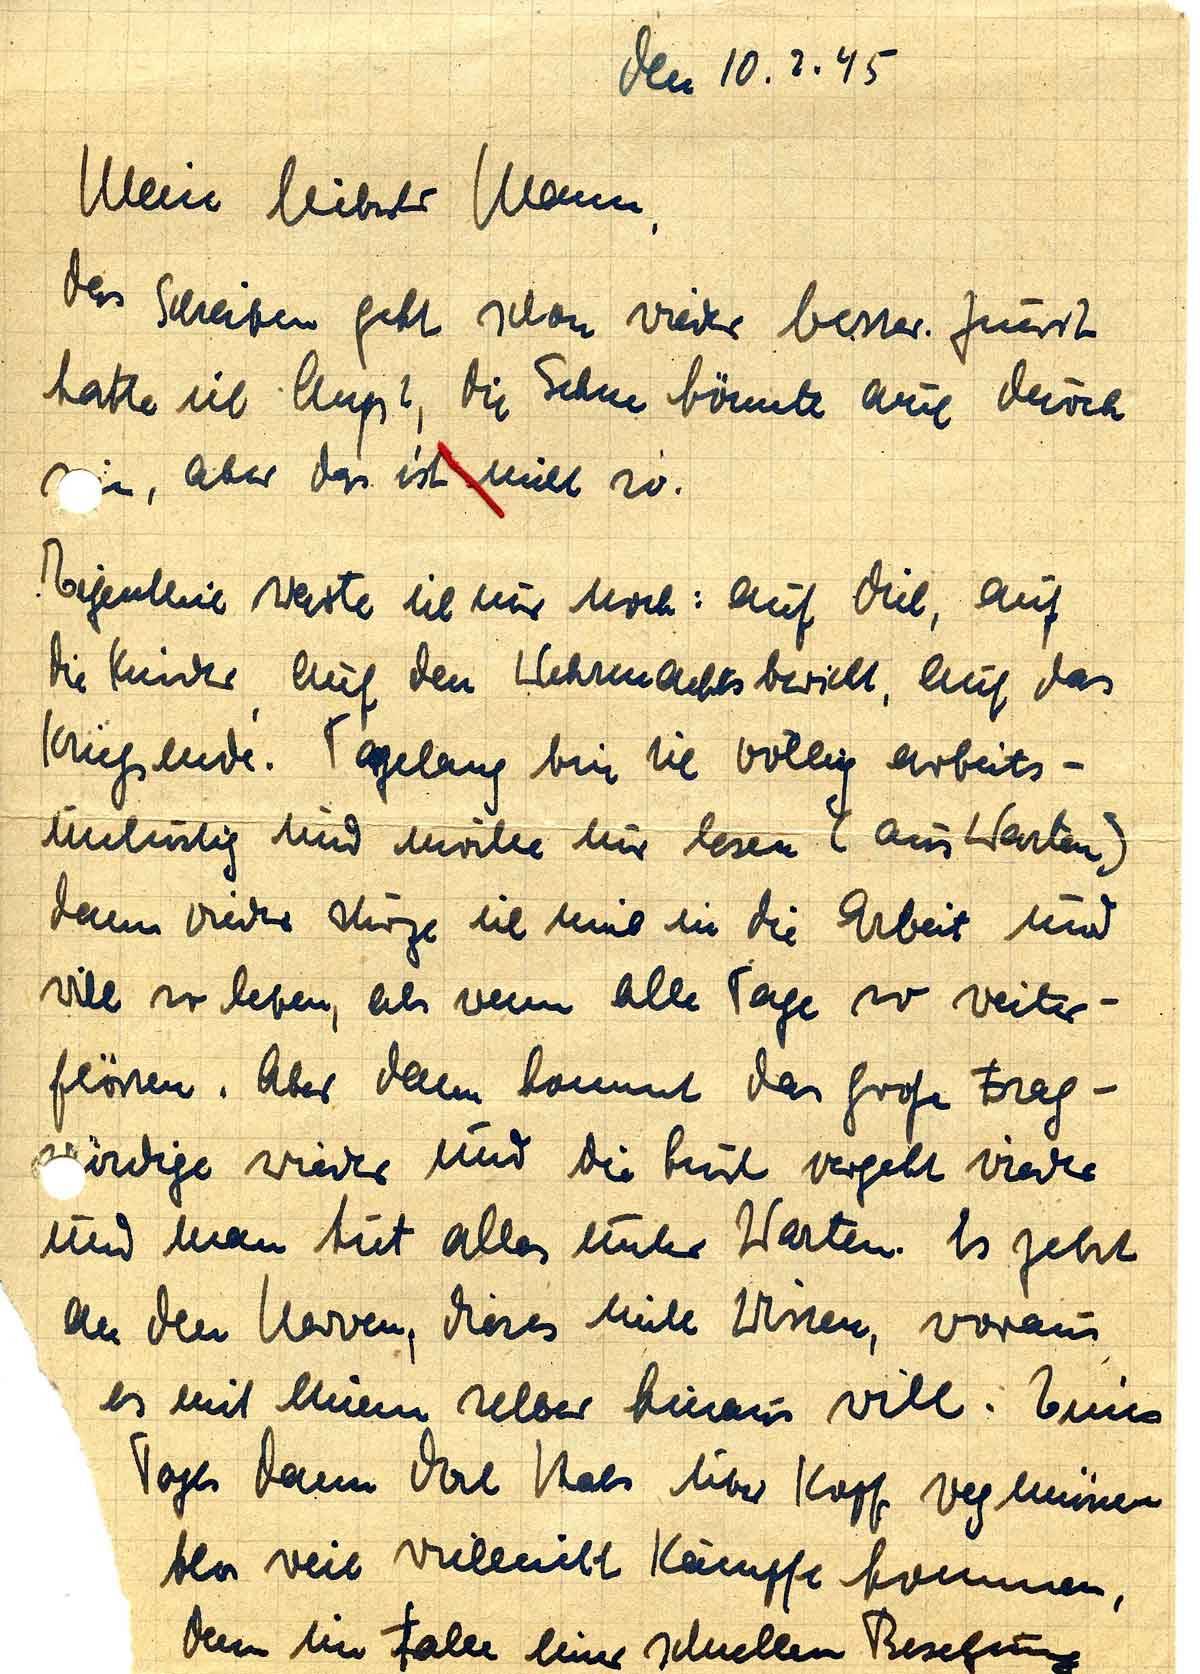 den 10. 2. 45
Mein liebster Mann,
das Schreiben geht schon wieder besser. Zuerst
hatte ich Angst, die Sehne könnte auch durch
sein, aber das ist nicht so.
Eigentlich warte ich nur noch: auf dich, auf
die Kinder, auf den Wehrmachtsbericht, auf das
Kriegsende. Tagelang bin ich völlig arbeits-
unlustig und möchte nur lesen (aus Warten)
dann wieder stürze ich mich in die Arbeit und
will so leben, als wenn alle Tage so weiter-
flössen. Aber dann kommt das große Frag-
würdige wieder und die Lust vergeht wieder
und man tut alles unter Warten. Es zehrt
an den Nerven, dieses nicht Wissen, woraus
es mit einem selber hinaus will. Eines
Tages dann doch Hals über Kopf weg müssen
blos weil vielleicht Kämpfe kommen,
denn im Falle einer schnellen Besetzung